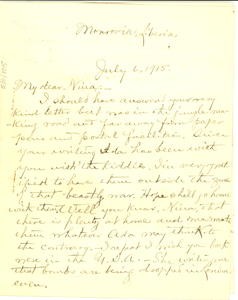 Monrovia, Liberia
July 6, 1915.
My dear Nina:-
I should have answered your very
kind letter but was in the jungle making
road and far away from paper
pens and postal facilities. Since
your writing Ada has been with
you with the kiddie. I'm very gratified
to have them outside the zone
of that beastly war. Hope
them tell you Nina, that
there is plenty at home and
them whatever Ada may think to
the contrary. I I wish you back
in the U.S.A. - She
that bombs are being dropped
even.